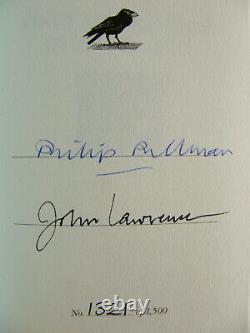 Philip Pullman
John Lawrence
No. 1321 of 1,500